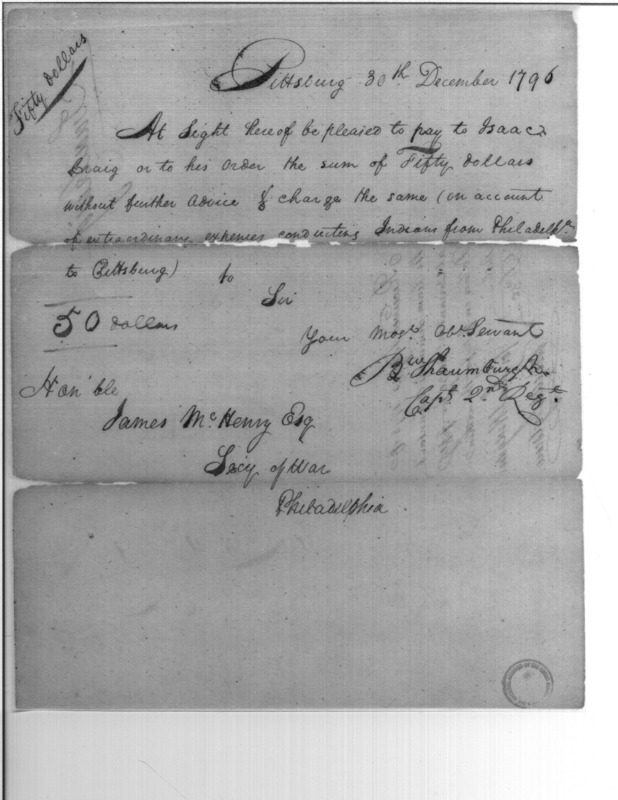 Fifty Dollars
Pittsburg 30th December 1796
At Sight hereof be pleased to pay to Isaac
Craig or to his order the sum of Fifty Dollars
without further advice & charge the same (on account
of extraordinary expenses conducting Indians from Philadelpa
to Pittsburg) to
Sir
50 dollars
Your Most Obt Servant
Bw Shaumburgh
Capt 2nd Regt
Hon'ble
James McHenry Esq
Secy of War
Philadelphia